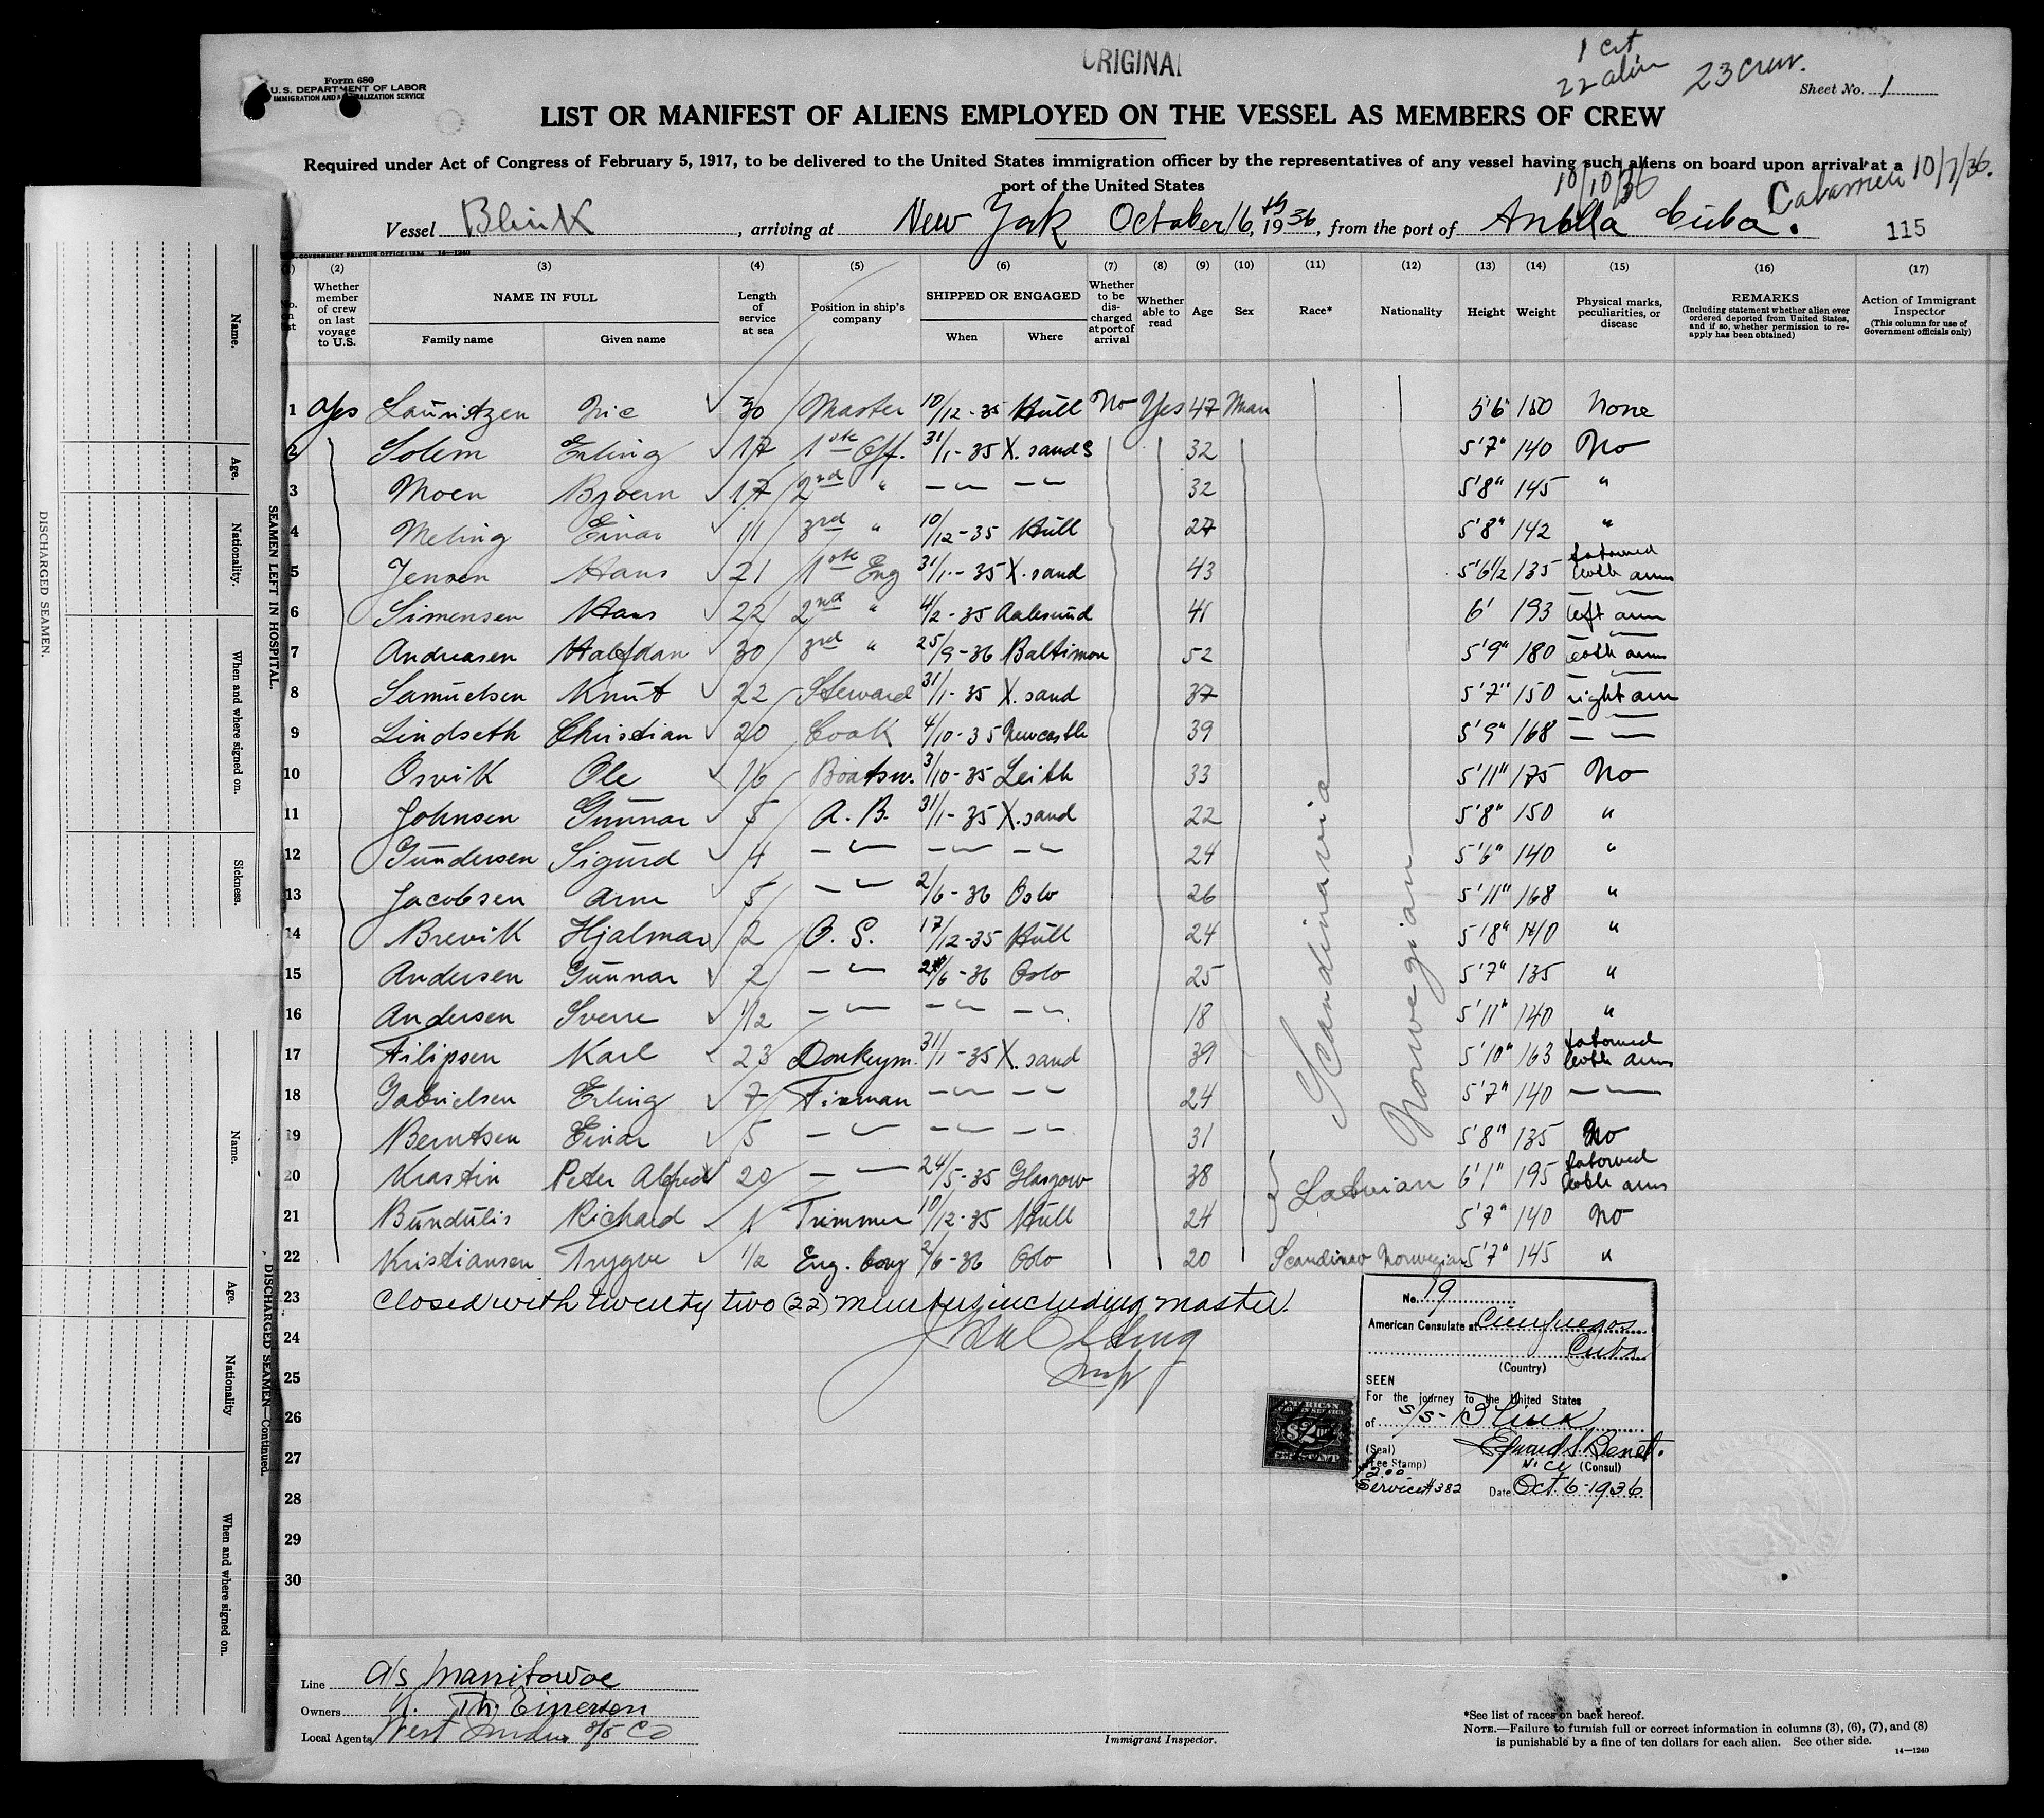 ORIGINAL
1 cit
22 alien 23 crew.
Form 680
U.S. DEPARTMENT OF LABOR
IMMIGRATION AND NATURALIZATION SERVICE
Sheet No. 1
LIST OR MANIFEST OF ALIENS EMPLOYED ON THE VESSEL AS MEMBERS OF CREW
Required under Act of Congress of February 5, 1917, to be delivered to the United States immigration officer by the representatives of any vessel having such aliens on board upon arrival at a
port of the United States
10/10/36 10/7/36.
Vessel Blink, arriving at New York October 16th, 1936, from the port of Antilla Cuba.
115
U.S. GOVERNMENT PRINTING OFFICE: 1934 14—1240
(1) (2) (3) (4) (5) (6) (7) (8) (9) (10) (11) (12) (13) (14) (15) (16) (17)
No. on list
Whether member of crew on last voyage to U.S.
NAME IN FULL
Family name
Given name
Length of service at sea
Position in ship's company
SHIPPED OR ENGAGED
When
Where
Whether to be discharged at port of arrival
Whether able to read
Age
Sex
Race*
Nationality
Height
Weight
Physical marks, peculiarities, or disease
REMARKS
(Including statement whether alien ever ordered deported from United States, and if so, whether permission to reapply has been obtained)
Action of Immigrant Inspector
(This column for use of Government officials only)
1 Yes Lauritzen Nic 30 Master 10/12-35 Hull No Yes 47 Man 5'6" 150 None
2 Solem Erling 17 1st Off. 31/1-35 X.sands 32 5'7" 140 No
3 Moen Bjoern 17 2nd " — — 32 5'8" 145 "
4 Meling Einar 11 3rd " 10/12-35 Hull 27 5'8" 142 "
5 Jensen Hans 21 1st Eng 31/1-35 X.sand 43 5'6½ 135 tatooed both arms
6 Simensen Hans 22 2nd " 4/2-35 Aalesund 41 6' 193 — left arm
7 Andreasen Halfdan 30 3rd " 25/9-36 Baltimore 52 5'9" 180 — both arms
8 Samuelsen Knut 22 Steward 31/1-35 X.sand 37 5'7" 150 — right arm
9 Lindseth Christian 20 Cook 4/10-35 Newcastle 39 5'9" 168 — —
10 Osvik Ole 16 Boatsw. 3/10-35 Leith 33 5'11" 175 No
11 Johnsen Gunnar 5 A.B. 31/1-35 X.sand 22 5'8" 150 "
12 Gundersen Sigurd 4 — — — 24 5'6" 140 "
13 Jacobsen Arne 5 — 2/6-36 Oslo 26 5'11" 168 "
14 Brevik Hjalmar 2 O.S. 17/12-35 Hull 24 5'8" 140 "
15 Andersen Gunnar 2 — 2/6-36 Oslo 25 5'7" 135 "
16 Andersen Sverre 1/2 — — — 18 5'11" 140 "
17 Filipsen Karl 23 Donkeym. 31/1-35 X.sand 39 5'10" 163 tatooed both arms
18 Gabrielsen Erling 7 Fireman — — 24 5'7" 140 —
19 Berntsen Einar 5 — — — 31 5'8" 135 No
20 Krastin Peter Alfred 20 — 24/5-35 Glasgow 38 Latvian 6'1" 195 tatooed both arms
21 Bundulis Richard 1 Trimmer 10/12-35 Hull 24 5'7" 140 No
22 Kristiansen Trygve 1/2 Eng. boy 2/6-36 Oslo 20 Scandinav Norwegian 5'7" 145 "
Scandinavia
Norwegian
23 Closed with twenty two (22) members including master.
24
25
26
27
28
29
30
No. 19
American Consulate at Cienfuegos
Cuba
(Country)
SEEN
For the journey to the United States
of S/S-Blink
(Seal)
(Fee Stamp)
$2.00
Service # 382
Vice (Consul)
Date Oct. 6-1936
AMERICAN
FOREIGN SERVICE
$2.00
FEE STAMP
Line A/S Manitowoc
Owners Th. Einersen
Local Agents West Indies S/S Co
Immigrant Inspector.
*See list of races on back hereof.
NOTE.—Failure to furnish full or correct information in columns (3), (6), (7), and (8)
is punishable by a fine of ten dollars for each alien. See other side.
14—1240
DISCHARGED SEAMEN.
SEAMEN LEFT IN HOSPITAL.
Name.
Age.
Nationality.
When and where signed on.
Sickness.
DISCHARGED SEAMEN—Continued.
Name.
Age.
Nationality
When and where signed on.